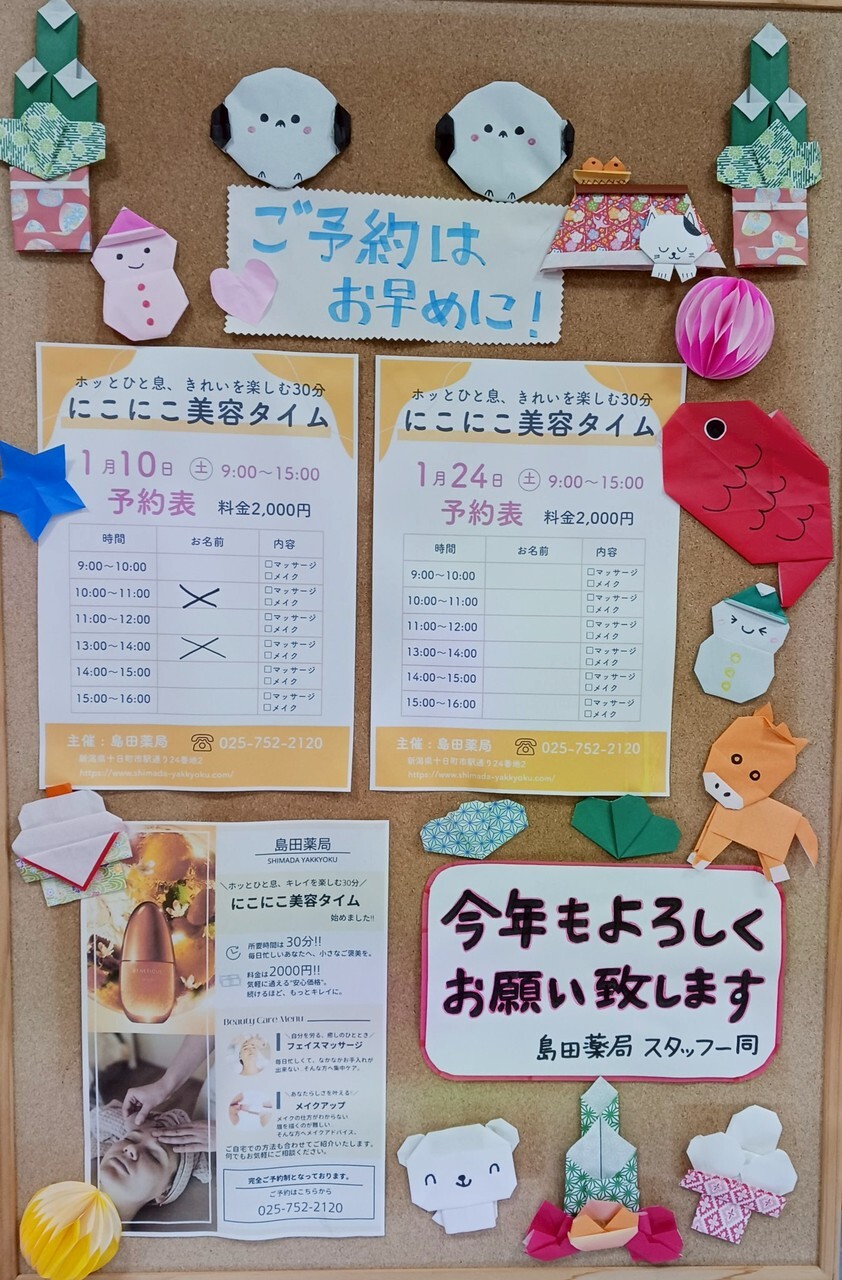 ご予約は
お早めに!
ホッとひと息、きれいを楽しむ30分
にこにこ美容タイム
1月10日 土 9:00〜15:00
予約表 料金2,000円
時間 お名前 内容
9:00〜10:00 □マッサージ
□メイク
10:00〜11:00 □マッサージ
□メイク
11:00〜12:00 □マッサージ
□メイク
13:00〜14:00 □マッサージ
□メイク
14:00〜15:00 □マッサージ
□メイク
15:00〜16:00 □マッサージ
□メイク
主催:島田薬局 ☎ 025-752-2120
新潟県十日町市駅通り24番地2
https://www.shimada-yakkyoku.com/
ホッとひと息、きれいを楽しむ30分
にこにこ美容タイム
1月24日 土 9:00〜15:00
予約表 料金2,000円
時間 お名前 内容
9:00〜10:00 □マッサージ
□メイク
10:00〜11:00 □マッサージ
□メイク
11:00〜12:00 □マッサージ
□メイク
13:00〜14:00 □マッサージ
□メイク
14:00〜15:00 □マッサージ
□メイク
15:00〜16:00 □マッサージ
□メイク
主催:島田薬局 ☎ 025-752-2120
新潟県十日町市駅通り24番地2
https://www.shimada-yakkyoku.com/
島田薬局
SHIMADA YAKKYOKU
\ホッとひと息、キレイを楽しむ30分/
にこにこ美容タイム
始めました!!
所要時間は30分!!
毎日忙しいあなたへ、小さなご褒美を。
料金は2000円!!
気軽に通える"安心価格"。
続けるほど、もっとキレイに。
Beauty Care Menu
\自分を労る、癒しのひととき/
フェイスマッサージ
毎日忙しくて、なかなかお手入れが
出来ない、そんな方へ集中ケア。
\あなたらしさを叶える!/
メイクアップ
メイクの仕方がわからない
眉を描くのが難しい
そんな方へメイクアドバイス。
ご自宅での方法も合わせてご紹介いたします。
何でもお気軽にご相談ください。
完全ご予約制となっております。
ご予約はこちらから
025-752-2120
今年もよろしく
お願い致します
島田薬局 スタッフ一同